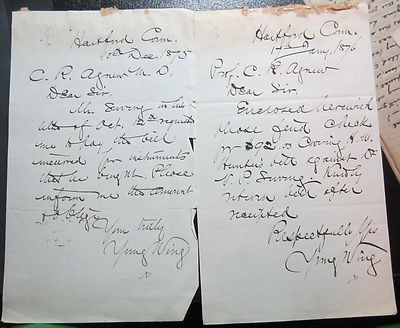 Hartford Conn.
Dec. 1875
C. R. Agnew M. D.
Dear Sir,
Mr. in his
letter of Oct. request
me to pay the bill
incurred for instruments
that he bought. Please
inform me the amount
& oblige
Yours truly
Yung Wing
Hartford Conn.
Jany. 1876
Prof. C. R. Agnew
Dear Sir,
Enclosed herewith
please find check
for $92 covering H. W.
bill against
Kindly
return bill after
receipted
Respectfully Yrs
Yung Wing